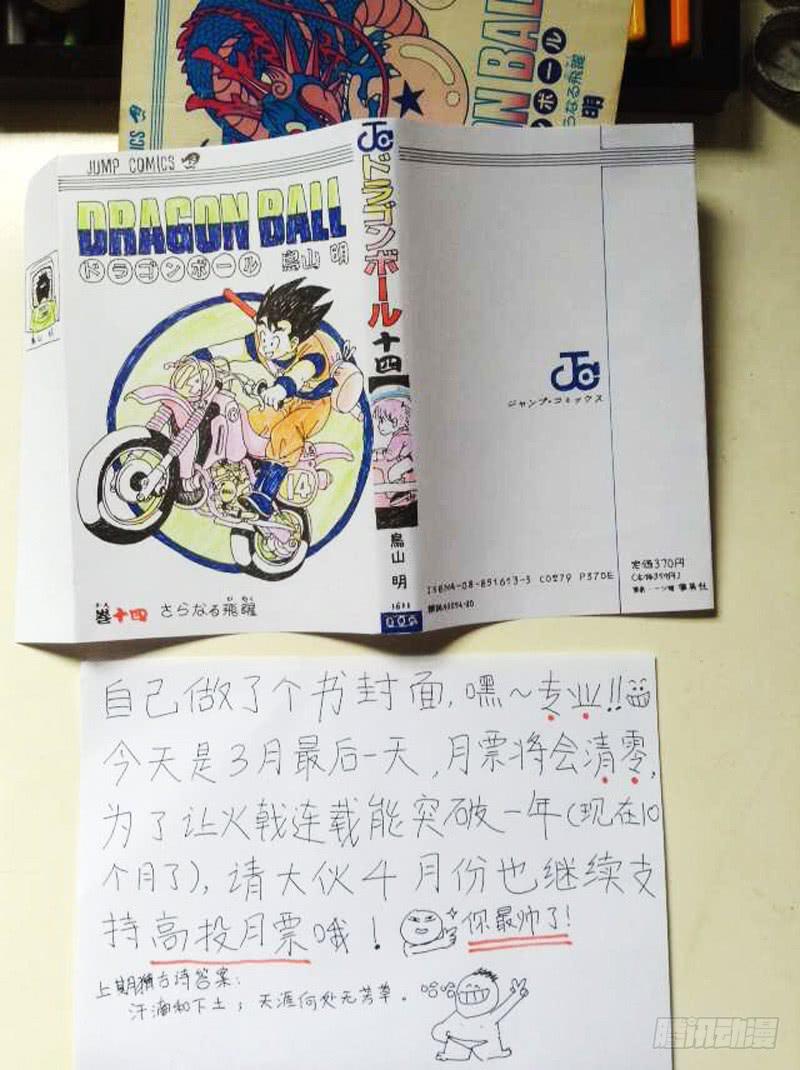 ON BALL
ンボール
らなる飛躍
明
MICS
JUMP COMICS
DRAGON BALL
ドラゴンボール 鳥山 明
14
巻十四 さらなる飛躍
かん
ひ やく
ドラゴンボール
十四
鳥山 明
ジャンプ・コミックス
ISBN4-08-851613-3 C0279 P370E
定価370円
集英社
自己做了个书封面,嘿~专业!!
今天是3月最后一天,月票将会清零,
为了让火戟连载能突破一年(现在10
个月了),请大伙4月份也继续支
持高投月票哦!
你最帅了!
上期猜古诗答案:
汗滴和下土;天涯何处无芳草.
哈哈
腾讯动漫